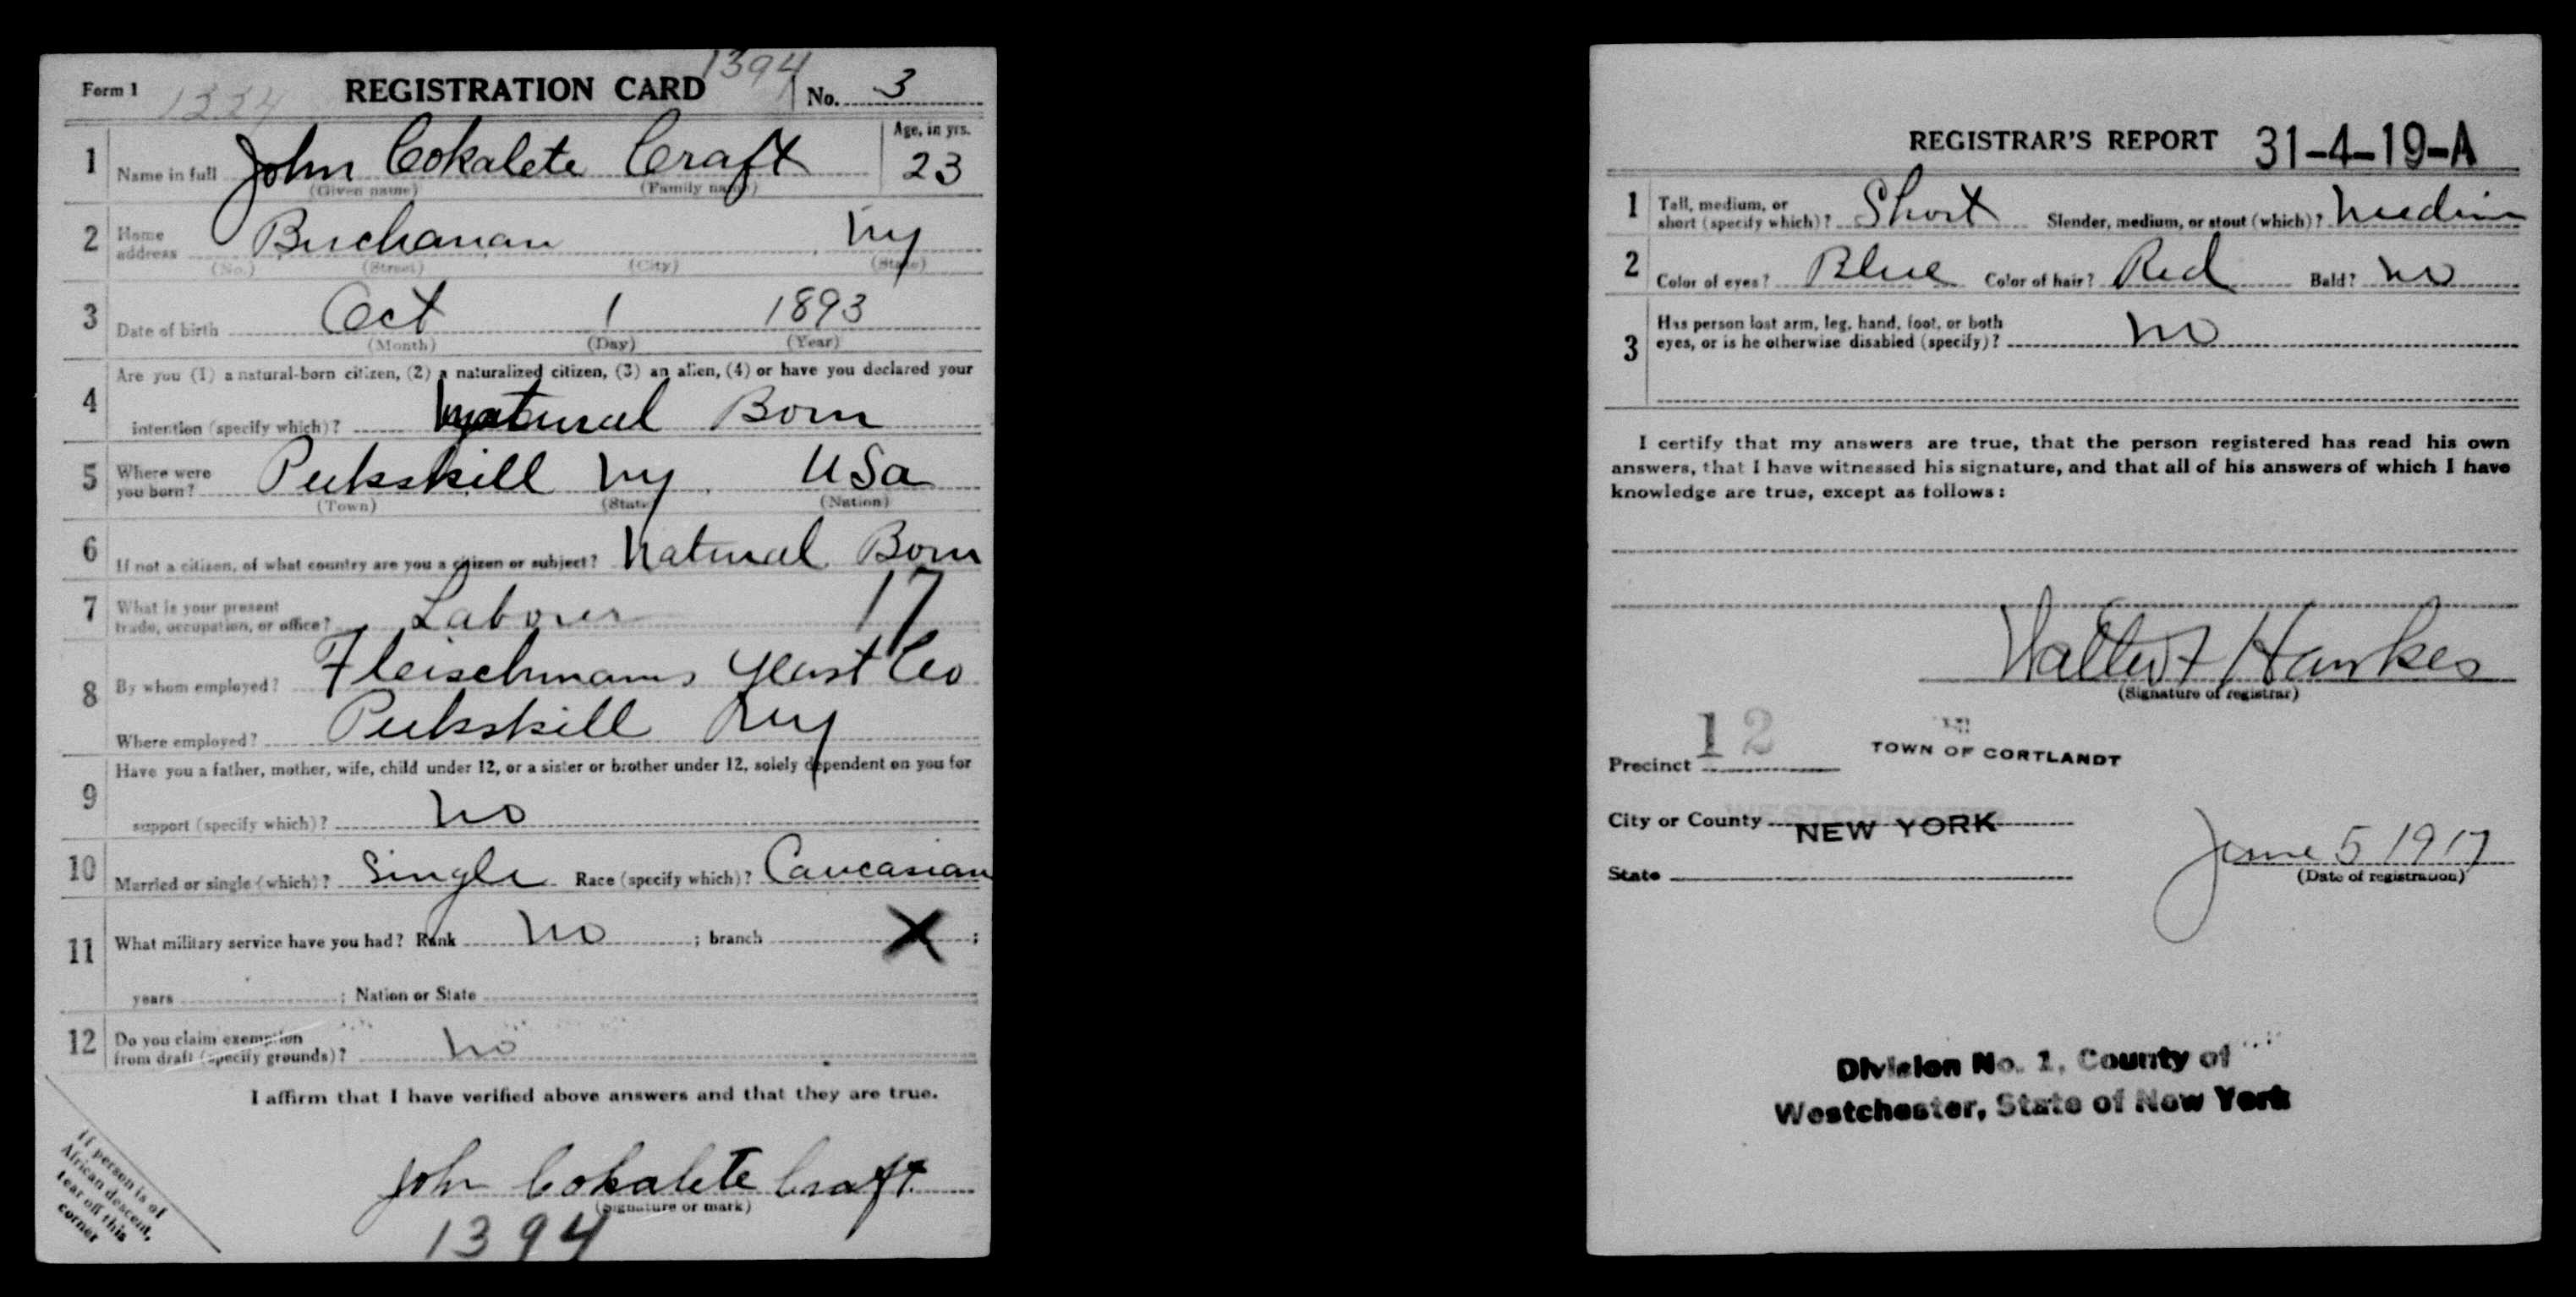 Form 1 1334 REGISTRATION CARD 1394 No. 3
1 Name in full John Cokalete Craft Age, in yrs. 23
(Given name) (Family name)
2 Home address Buchanan Ny
(No.) (Street) (City) (State)
3 Date of birth Oct 1 1893
(Month) (Day) (Year)
4 Are you (1) a natural-born citizen, (2) a naturalized citizen, (3) an alien, (4) or have you declared your
intention (specify which)? Natural Born
5 Where were you born? Peekskill Ny USa
(Town) (State) (Nation)
6 If not a citizen, of what country are you a citizen or subject? Natural Born
7 What is your present trade, occupation, or office? Laborer 17
8 By whom employed? Fleischmanns Yeast Co
Where employed? Peekskill Ny
9 Have you a father, mother, wife, child under 12, or a sister or brother under 12, solely dependent on you for
support (specify which)? No
10 Married or single (which)? Single Race (specify which)? Caucasian
11 What military service have you had? Rank No ; branch X ;
years ; Nation or State
12 Do you claim exemption from draft (specify grounds)? No
I affirm that I have verified above answers and that they are true.
John Cokalete Craft
(Signature or mark)
1394
If person is of
African descent,
tear off this
corner
REGISTRAR'S REPORT 31-4-19-A
1 Tall, medium, or short (specify which)? Short Slender, medium, or stout (which)? Medium
2 Color of eyes? Blue Color of hair? Red Bald? No
3 Has person lost arm, leg, hand, foot, or both
eyes, or is he otherwise disabled (specify)? No
I certify that my answers are true, that the person registered has read his own
answers, that I have witnessed his signature, and that all of his answers of which I have
knowledge are true, except as follows:
Walter F Hawkes
(Signature of registrar)
Precinct 12 TOWN OF CORTLANDT
City or County WESTCHESTER
NEW YORK
State
June 5 1917
(Date of registration)
Division No. 1, County of
Westchester, State of New York